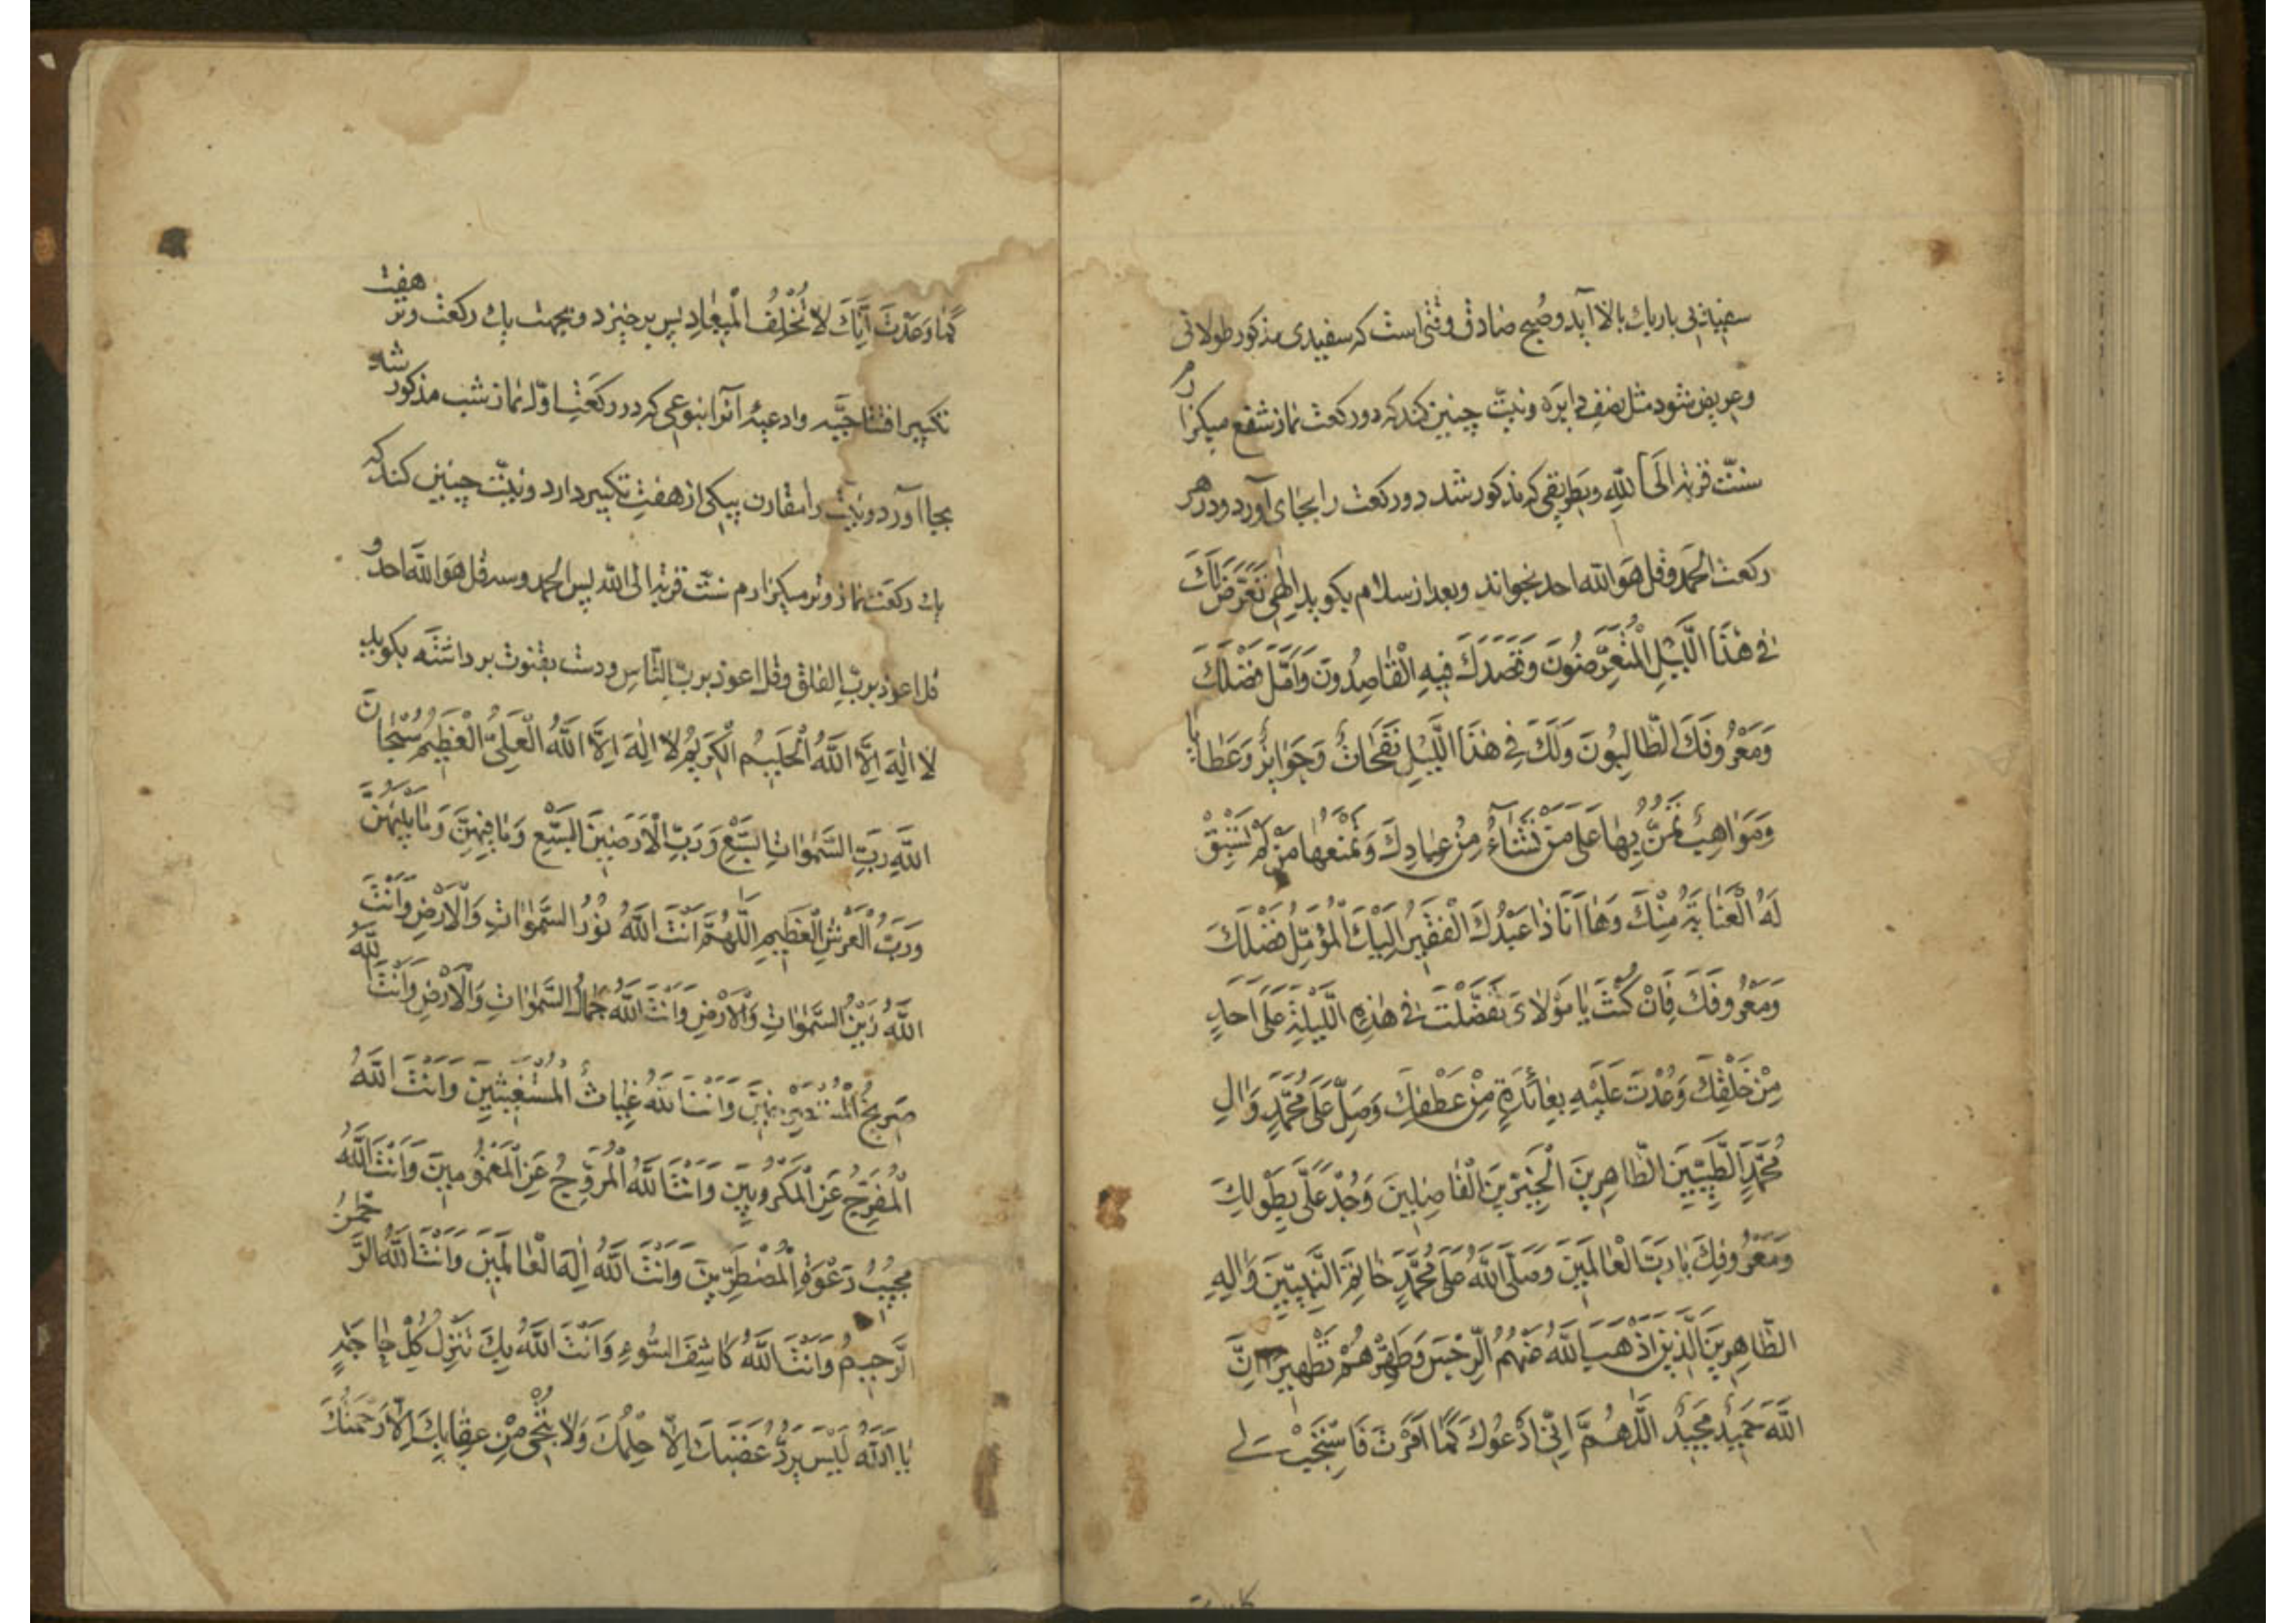 سفیدیی باریك بالا آید و صُبح صادق وقتی است كه سفیدی مذكور طولانی
و عریض شود مثل نصفِ دایره و نیّت چنین كند كه دو ركعت نماز شفع میكزارم
سنّت قربة اِلَی اللهِ و بطریقی كه مذكور شد دو ركعت را بجای آورد و در هر
ركعت الحَمد و قل هوَ الله احد بخواند و بعد از سلام بكوید اِلٰهی تَعَرَّضَ لَكَ
فی هٰذَا اللَّیْلِ الْمُتَعَرِّضُونَ وَقَصَدَكَ فیهِ الْقٰاصِدُونَ وَاَمَّلَ فَضْلَكَ
وَمَعْرُوفَكَ الطّٰالِبُونَ وَلَكَ فی هٰذَا اللَّیْلِ نَفَحٰاتٌ وَجَوٰایِزٌ وَعَطٰایٰا
وَمَوٰاهِبُ تَمُنُّ بِهٰا عَلیٰ مَنْ تَشٰآءُ مِنْ عِبٰادِكَ وَتَمْنَعُهٰا مَنْ لَمْ تَسْبِقْ
لَهُ الْعِنٰایَةُ مِنْكَ وَهٰا اَنَا ذٰا عَبْدُكَ الْفَقیرُ اِلَیْكَ الْمُؤَمِّلُ فَضْلَكَ
وَمَعْرُوفَكَ فَاِنْ كُنْتَ یٰا مَوْلاٰیَ تَفَضَّلْتَ فی هٰذِهِ اللَّیْلَةِ عَلیٰ اَحَدٍ
مِنْ خَلْقِكَ وَعُدْتَ عَلَیْهِ بِعٰائِدَةٍ مِنْ عَطْفِكَ وَصَلِّ عَلیٰ مُحَمَّدٍ وَاٰلِ
مُحَمَّدٍ الطَّیِّبینَ الطّٰاهِرینَ الْخَیِّرینَ الْفٰاضِلینَ وَجُدْ عَلَیَّ بِطَوْلِكَ
وَمَعْرُوفِكَ یٰا رَبَّ الْعٰالَمینَ وَصَلَّی اللهُ عَلیٰ مُحَمَّدٍ خٰاتَمِ النَّبِیّینَ وَاٰلِهِ
الطّٰاهِرینَ الَّذینَ اَذْهَبَ اللهُ عَنْهُمُ الرِّجْسَ وَطَهَّرَهُمْ تَطْهیرًا اِنَّ
اللهَ حَمیدٌ مَجیدٌ اَللّٰهُمَّ اِنّی اَدْعُوكَ كَمٰا اَمَرْتَ فَاسْتَجِبْ لی
كَمٰا وَعَدْتَ اِنَّكَ لاٰ تُخْلِفُ الْمیعٰادِ پس برخیزد و بجهت یك ركعت وتر هفت
تكبیر افتتاحیّه و ادعیهٔ آنرا بنوعی كه در ركعَت اوّل نماز شب مذكور شد
بجا آورد و نیّت را مقارن بیكی از هفت تكبیر دارد و نیّت چنین كند كه
یك ركعَت نماز وتر میكزارم سنّت قربة الی الله پس الحمد و سه قل هوَ الله احد و
قل اعوذ بربّ الفلق و قل اعوذ بربّ النّاس و دست بقنوت برداشته بكوید
لاٰ اِلٰهَ اِلاَّ اللهُ الْحَلیمُ الْكَریمُ لاٰ اِلٰهَ اِلاَّ اللهُ الْعَلِیُّ الْعَظیمُ سُبْحٰانَ
اللهِ رَبِّ السَّمٰوٰاتِ السَّبْعِ وَرَبِّ الْاَرَضینَ السَّبْعِ وَمٰا فیهِنَّ وَمٰا بَیْنَهُنَّ
وَرَبِّ الْعَرْشِ الْعَظیمِ اَللّٰهُمَّ اَنْتَ اللهُ نُورُ السَّمٰوٰاتِ وَالْاَرْضِ وَاَنْتَ
اللهُ زَیْنُ السَّمٰوٰاتِ وَالْاَرْضِ وَاَنْتَ اللهُ جَمٰالُ السَّمٰوٰاتِ وَالْاَرْضِ وَاَنْتَ اللهُ
صَریخُ الْمُسْتَصْرِخینَ وَاَنْتَ اللهُ غِیٰاثُ الْمُسْتَغیثینَ وَاَنْتَ اللهُ
الْمُفَرِّجُ عَنِ الْمَكْرُوبینَ وَاَنْتَ اللهُ الْمُرَوِّحُ عَنِ الْمَغْمُومینَ وَاَنْتَ اللهُ
مُجیبُ دَعْوَةِ الْمُضْطَرّینَ وَاَنْتَ اللهُ اِلٰهُ الْعٰالَمینَ وَاَنْتَ اللهُ الرَّحْمٰنُ
الرَّحیمُ وَاَنْتَ اللهُ كٰاشِفُ السُّوءِ وَاَنْتَ اللهُ بِكَ تُنْزَلُ كُلُّ حٰاجَةٍ
یٰا اَللهُ لَیْسَ یَرُدُّ غَضَبَكَ اِلاّٰ حِلْمُكَ وَلاٰ یُنْجی مِنْ عِقٰابِكَ اِلاّٰ رَحْمَتُكَ